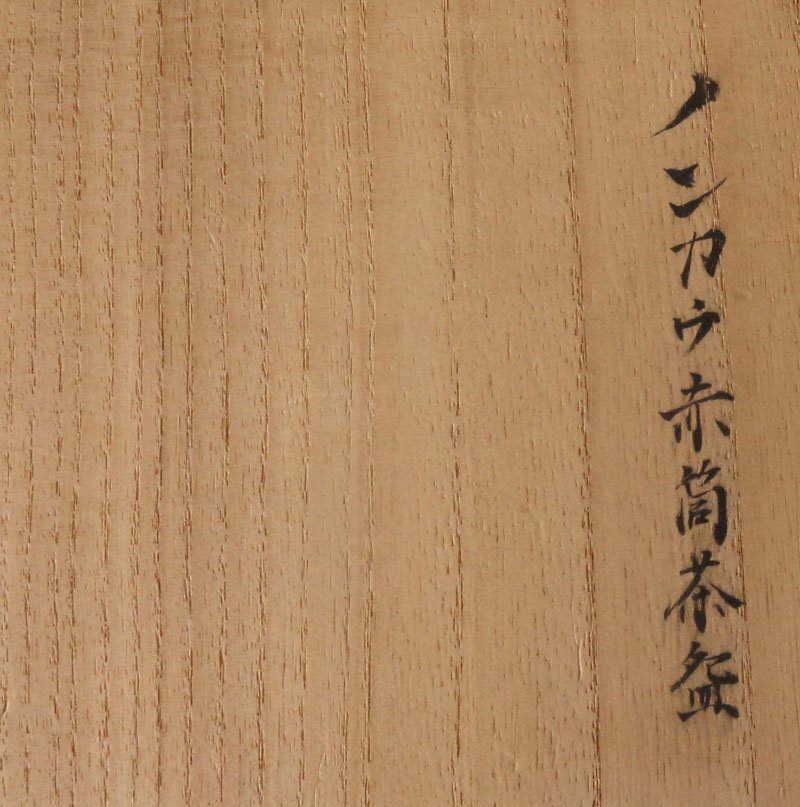 ノンカウ赤筒茶盌